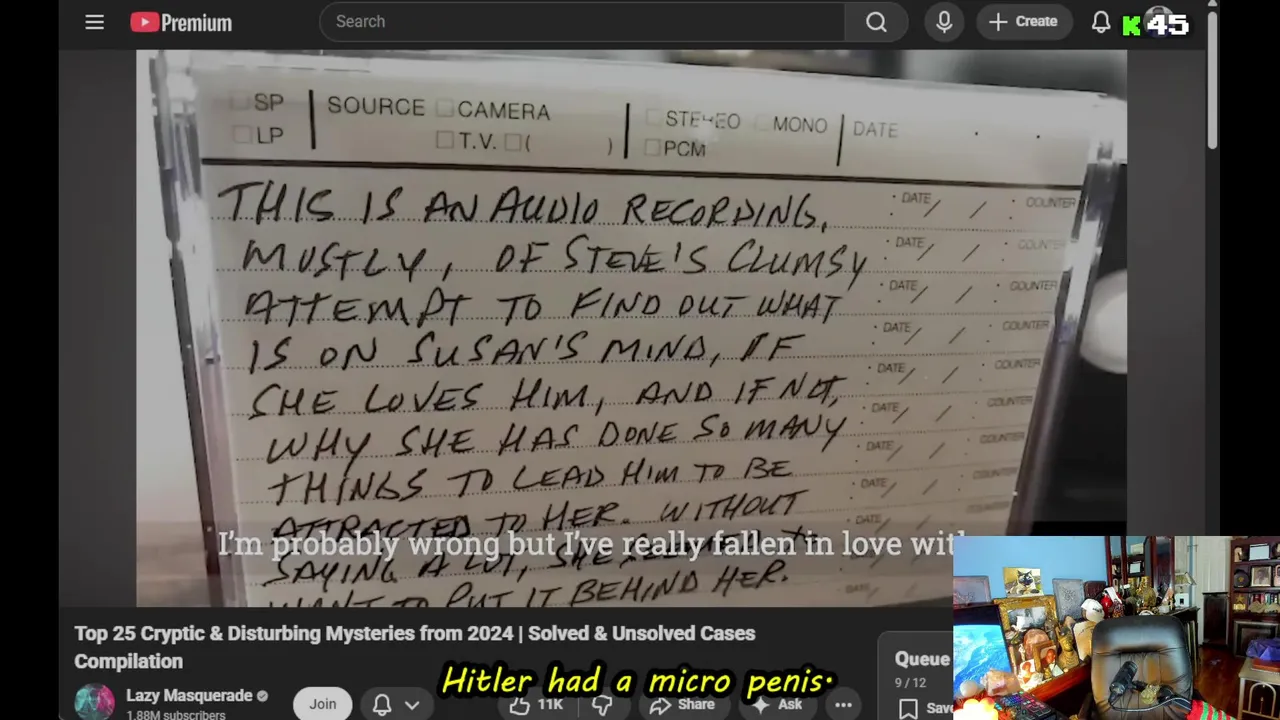 Premium
Search
Create
K 45
SP
SOURCE CAMERA
STEREO MONO
DATE
LP
T.V. ( )
PCM
THIS IS AN AUDIO RECORDING, DATE / / COUNTER
MOSTLY, OF STEVE'S CLUMSY DATE / / COUNTER
ATTEMPT TO FIND OUT WHAT DATE / / COUNTER
IS ON SUSAN'S MIND, IF DATE / / COUNTER
SHE LOVES HIM, AND IF NOT, DATE / / COUNTER
WHY SHE HAS DONE SO MANY DATE / / COUNTER
THINGS TO LEAD HIM TO BE DATE / / COUNTER
ATTRACTED TO HER. WITHOUT DATE / /
I'm probably wrong but I've really fallen in love with
SAYING A LOT, SHE
WANT TO PUT IT BEHIND HER.
Top 25 Cryptic & Disturbing Mysteries from 2024 | Solved & Unsolved Cases
Compilation
Queue
9 / 12
Hitler had a micro penis.
Lazy Masquerade
1.88M subscribers
Join
11K
Share
Ask
Save